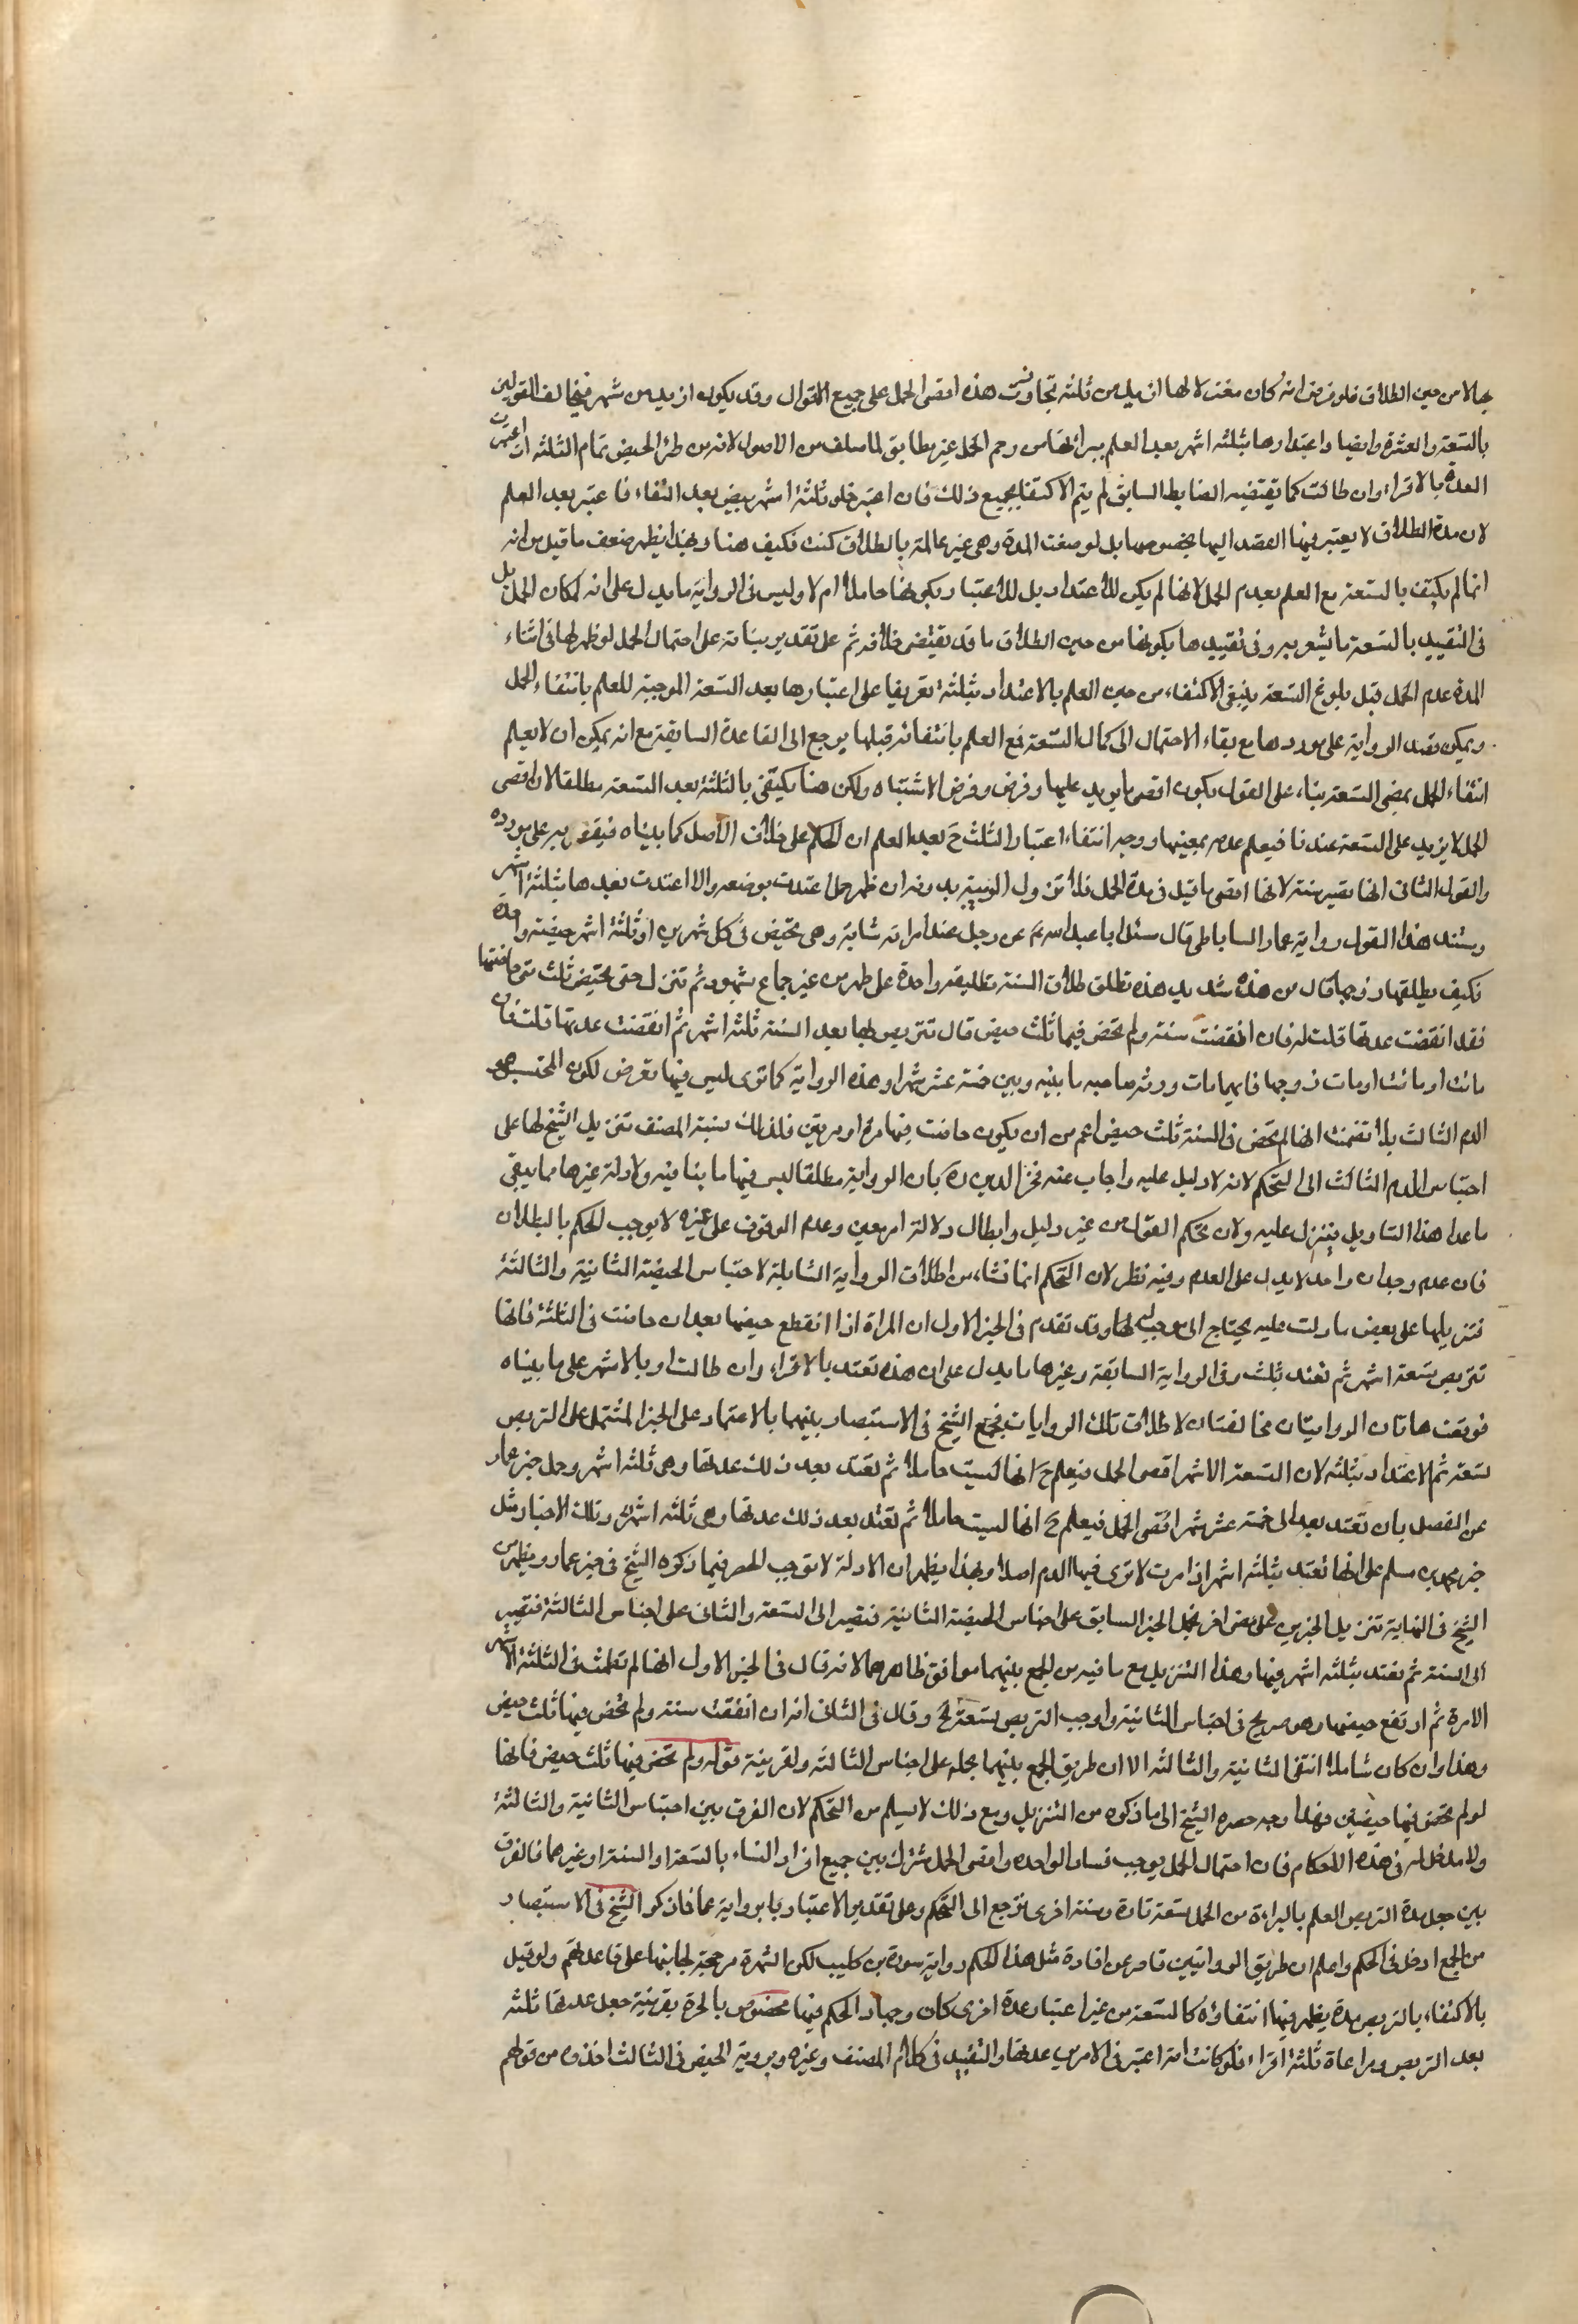 بها لا من حين الطلاق فلو فرض انه كان معتزلا لها ازيد من ثلثة تجاوزت هذه اقصى الحمل على جميع الاقوال وقد يكون ازيد من شهر فيخالف القولين
بالتسعة والعشرة وايضا واعتدادها بثلثة اشهر بعد العلم ببرائتها من رحم الحمل غير مطابق لما سلف من الاصول لانه من طرئ الحيض تمام الثلثة ان اعتبرت
العدة بالاقراء وان طالت كما يقتضيه الضابط السابق لم يتم الاكتفا بجميع ذلك فان اعتبر خلو ثلثة اشهر بيض بعد النقاء فاعتبر بعد العلم
لان مدة الطلاق لا يعتبر فيها القصد اليها بخصوصها بل لو مضت المدة وهي غير عالمة بالطلاق كفت فكيف هنا وبهذا يظهر ضعف ما قيل من انه
انما لم يكتف بالتسعة مع العلم بعدم الحمل لانها لم يكن للاعتداد بل للاعتبار بكونها حاملا ام لا وليس فى الرواية ما يدل على انه لمكان الحمل بل
فى التقييد بالتسعة ما يشعر به وفى تقييدها بكونها من حين الطلاق ما قد يقتضى خلافه ثم على تقدير بنائه على احتمال الحمل لو ظهر لها فى اثناء
المدة عدم الحمل قبل بلوغ التسعة ينبغى الاكتفاء من حين العلم بالاعتداد بثلثة تعريفا على اعتبارها بعد التسعة الموجبة للعلم بانتفاء الحمل
ويمكن قصد الرواية على موردها مع بقاء الاحتمال الى كمال التسعة فمع العلم بانتفائه قبلها يرجع الى القاعدة السابقة مع انه يمكن ان لا يعلم
انتفاء الحمل بمضى التسعة بناء على القول بكون اقصى ما يزيد عليها وفرض وفرض الاشتباه ولكن هنا يكتفى بالثلثة بعد التسعة مطلقا لان اقصى
الحمل لا يزيد على التسعة عندنا فيعلم عدمه بمضيها ووجه انتفاء اعتبار الثلث ح بعد العلم ان الحكم على خلاف الاصل كما بيناه فيقتصر به على مورده
والقول الثانى انها تصبر سنة لانها اقصى ما قيل فى مدة الحمل فلا تزول الريبة بدونه ان ظهر حمل اعتدت بوضعه والا اعتدت بعدها بثلثة اشهر
ومستند هذا القول رواية عمار الساباطى قال سئل ابا عبد الله ع عن رجل عنده امراته شابة وهى تحيض فى كل شهرين او ثلثة اشهر حيضة واحدة
فكيف يطلقها زوجها قال من هذه شديد هذه تطلق طلاق السنة تطليقة واحدة على طهر من غير جماع بشهود ثم تترك حتى تحيض ثلث متى حاضتها
فقد انقضت عدتها قلت له فان انقضت سنة ولم تحض فيها ثلث حيض قال تتربص بها بعد السنة ثلثة اشهر ثم انقضت عدتها قلت فان
ماتت او ماتت او مات زوجها فايهما مات ورثه صاحبه ما بينه وبين خمسة عشر شهرا وهذه الرواية كما ترى ليس فيها تعرض لكون المحتبس هو
الدم الثالث بل تضمنت انها لم تحض فى السنة ثلث حيض اعم من ان يكون حاضت فيها مرة او مرتين فلذلك نسبة المصنف تنزيل الشيخ لها على
احتباس الدم الثالث الى التحكم لانه لا دليل عليه واجاب عنه فخر الدين ره بان الرواية مطلقا ليس فيها ما ينافيه ولا دلة غيرها مما يبقى
ما عدا هذا التاويل ينزل عليه ولان تحكم القول من غير دليل وابطال دلالة امر معين وعدم الوقوف على غيره لا يوجب الحكم بالبطلان
فان عدم وجدان واحد لا يدل على العدم وفيه نظر لان التحكم انما نشاء من اطلاق الرواية الشاملة لاحتباس الحيضة الثانية والثالثة
فتنزيلها على بعض ما دلت عليه يحتاج الى موجب لها وقد تقدم فى الخبر الاول ان المراة اذا انقطع حيضها بعد ان حاضت فى الثلثة فانها
تتربص تسعة اشهر ثم تعتد بثلث وفى الرواية السابقة وغيرها ما يدل على ان هذه تعتد بالاقراء وان طالت او بالاشهر على ما بيناه
فوقعت هاتان الروايتان مخالفتان لاطلاق تلك الروايات فجمع الشيخ فى الاستبصار بينهما بالاعتماد على الخبر المشتمل على التربص
تسعة ثم الاعتداد بثلثة لان التسعة الاشهر اقصى الحمل فيعلم ح انها ليست حاملا ثم تعتد بعد ذلك عدتها وهى ثلثة اشهر وحمل خبر عمار
على الفصل بان تعتد بعد الى خمسة عشر شهرا اقصى الحمل فيعلم ح انها ليست حاملا ثم تعتد بعد ذلك عدتها وهى ثلثة اشهر وتلك الاخبار مثل
خبر محمد بن مسلم على انها تعتد بثلثة اشهر اذا مرت لا ترى فيها الدم اصلا وبهذا يظهر ان الادلة لا توجب الحصر فيما ذكره الشيخ فى خبر عمار ويظهر من
الشيخ فى النهاية تنزيل الخبرين على معنى اخر فحمل الخبر السابق على احتباس الحيضة الثانية فتصبر الى التسعة والثانى على احتباس الثالثة فتصبر
الى السنة ثم تعتد بثلثة اشهر فيها وهذا التنزيل مع ما فيه من الجمع بينهما موافق ظاهرهما لانه قال فى الخبر الاول انها لم تطمث فى الثلثة الاشهر
الا مرة ثم ارتفع حيضها وهو صريح فى احتباس الثانية واوجب التربص تسعة لخ وقال فى الثانى انه ان انقضت سنة ولم تحض فيها ثلث حيض
وهذا وان كان شاملا انتفى الثانية والثالثة الا ان طريق الجمع بينهما بحمله على احتباس الثالثة ولقرينة قوله ولم تحض فيها ثلث حيض فانها
لو لم تحض فيها حيضتين فهذا وجه حصره الشيخ الى ما ذكره من التنزيل ومع ذلك لا يسلم من التحكم لان الفرق بين احتباس الثانية والثالثة
ولا مدخل له فى هذه الاحكام فان احتمال الحمل يوجب فساد الواحدة واقصى الحمل مشترك بين جميع افراد النساء بالتسعة او السنة او غيرهما فالفرق
بين جعل مدة التربص العلم بالبراءة من الحمل تسعة تارة وسنة اخرى يرجع الى التحكم وعلى تقدير الاعتبار بابرواية عمار فاذكر الشيخ فى الاستبصار
من الجمع ادخل فى الحكم واعلم ان طريق الروايتين قاصر عن افادة مثل هذا الحكم رواية سورة بن كليب لكن الشهرة مرجحة لجانبها على قاعدتهم ولو قيل
بالاكتفاء بالتربص مدة يظهر فيها انتفاؤه كالتسعة من غير اعتبار عدة اخرى كان وجها والحكم فيها مخصوص بالحرة بقرينة جعل عدتها ثلثة
بعد التربص ومراعاة ثلثة اقراء فلو كانت امة اعتبر فى الامرين عدتها والتقييد فى كلام المصنف وغيره وبروية الحيض فى الثالث اخذوه من قولهم